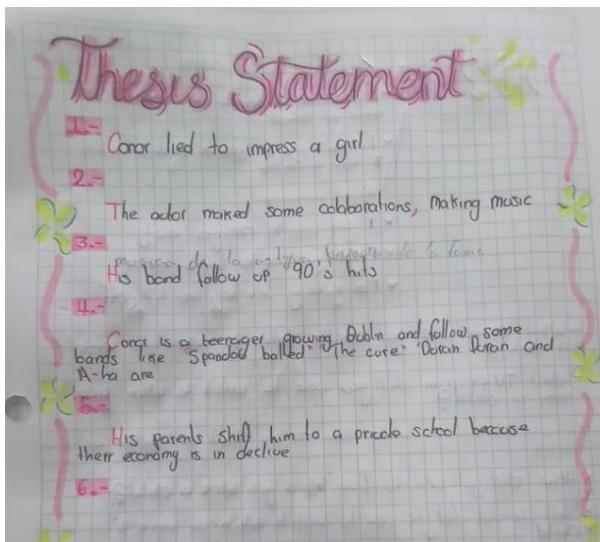 Thesis Statement
1.-
Conor lied to impress a girl
2.-
The actor maked some colaborations, making music
3.-
His band follow up '90's hits
4.-
Conor is a teenager growing Dublin and follow some
bands like "Spandau balled" "The cure" Duran Duran and
A-ha are
5.-
His parents shift him to a private school because
their economy is in declive
6.-